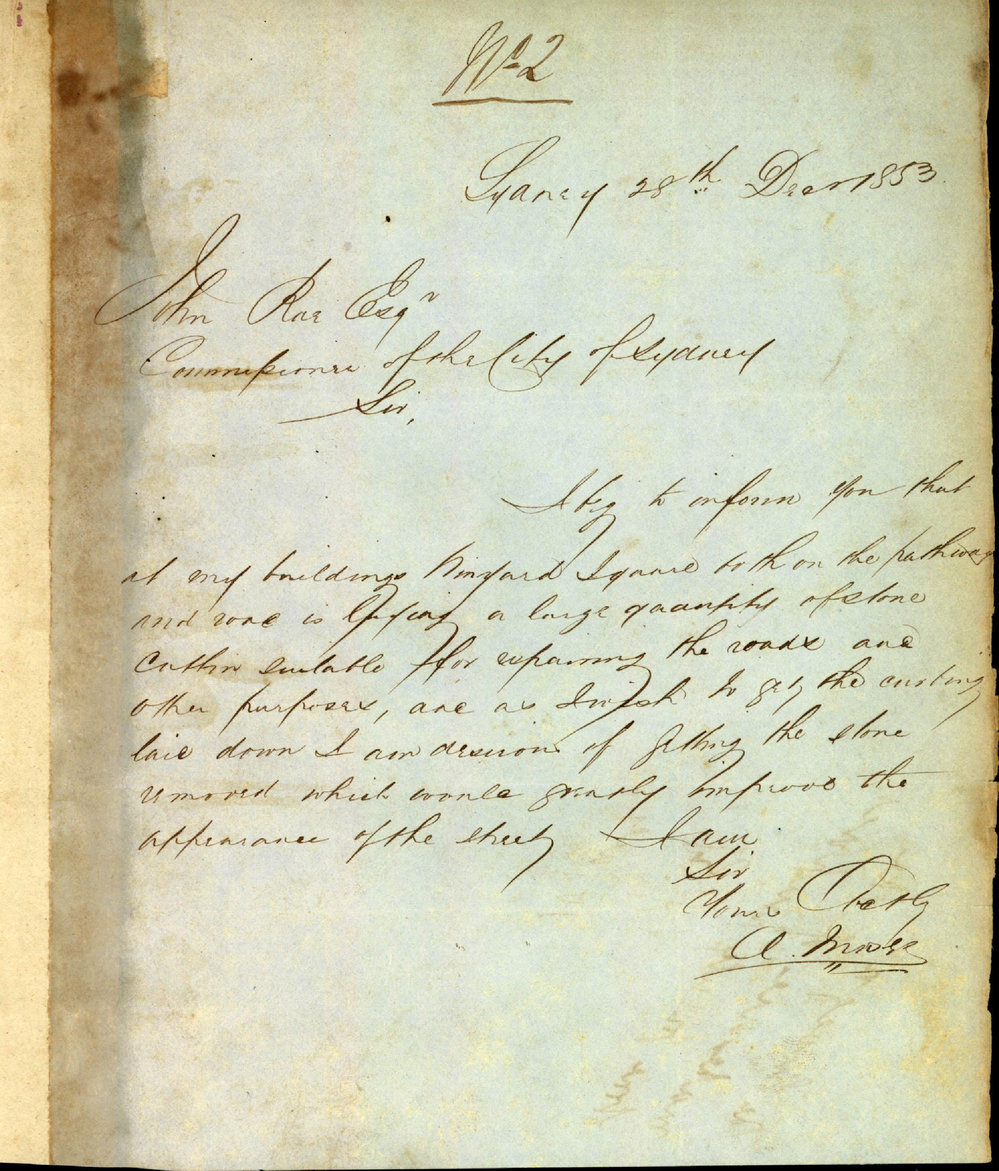 No 2
Sydney 28th Decr 1853
John Rae Esqr
Commissioner of the City of Sydney
Sir,
I beg to inform you that
at my buildings Wynyard Square both on the pathway
and road is lying a large quantity of stone
suitable for repairing the roads and
other purposes, and as I wish to get the curbing
laid down I am desirous of getting the stone
removed which would greatly improve the
appearance of the street I am
Sir
Yours Obedtly
A. Moore